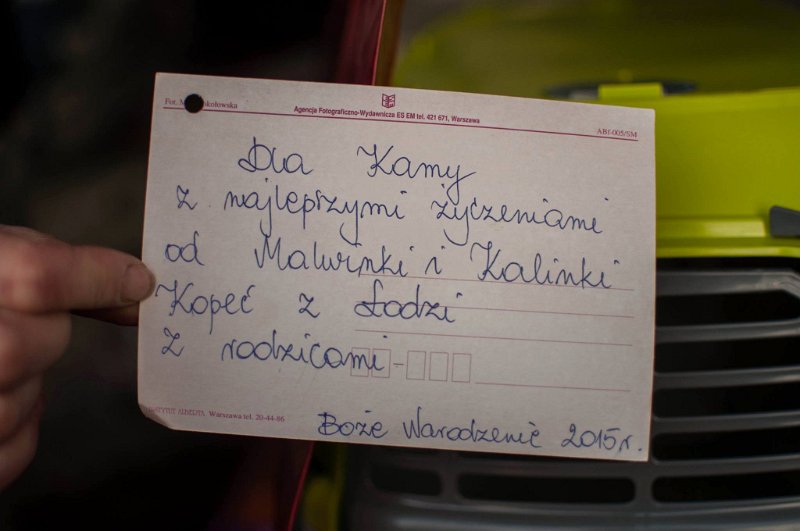 Fot. M. okołowska
Agencja Fotograficzno-Wydawnicza ES EM tel. 421 671, Warszawa
ABf-005/SM
Dla Kamy
z najlepszymi życzeniami
od Malwinki i Kalinki
Kopeć z Łodzi
z rodzicami
INSTYTUT ALBERTA Warszawa tel. 20-44-86
Boże Narodzenie 2015r.